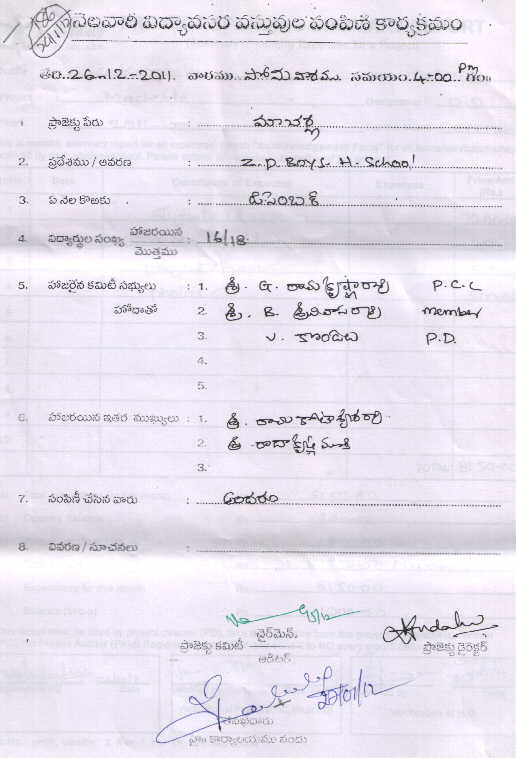 నెలవారీ విద్యావసర వస్తువుల పంపిణీ కార్యక్రమం
తేది.26-12-2011. వారము సోమవారము సమయం.4-00.Pm గం॥
1. ప్రాజెక్టు పేరు : మాచర్ల
2. ప్రదేశము / ఆవరణ : Z.P. Boys. H. School
3. ఏ నెల కొఱకు : డిసెంబర్
4. విద్యార్థుల సంఖ్య హాజరయిన / మొత్తము : 16/18
5. హాజరైన కమిటీ సభ్యులు : 1. శ్రీ. G. రామకృష్ణారావు P.C.C
హోదాతో 2. శ్రీ. B. శ్రీనివాసరావు member
3. V. కొండలు P.D.
4.
5.
6. హాజరయిన ఇతర ముఖ్యులు : 1. శ్రీ. రామకోటేశ్వరరావు
2. శ్రీ రాధాకృష్ణమూర్తి
3.
7. పంపిణీ చేసిన వారు : అందరూ
8. వివరణ / సూచనలు :
ప్రాజెక్టు కమిటీ చైర్‌మెన్.
ఆడిటర్
ప్రాజెక్టు డైరెక్టర్
20/01/12
కార్యాలయము నందు